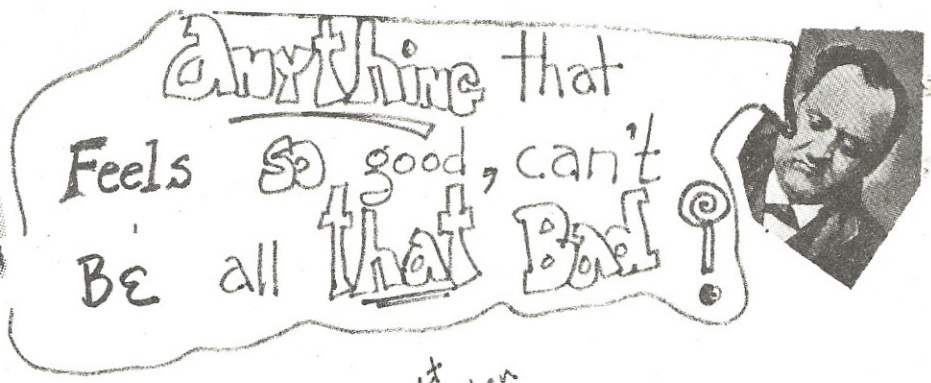 Anything that
Feels so good, can't
Be all that Bad!